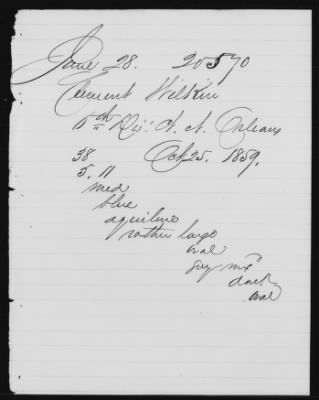 June 28. 20570
Clement Wilkin
15th Dis. N. Orleans
38 Oct 25. 1859.
5. 11
med
blue
aquiline
rather large
oval
grey mxd
dark
oval